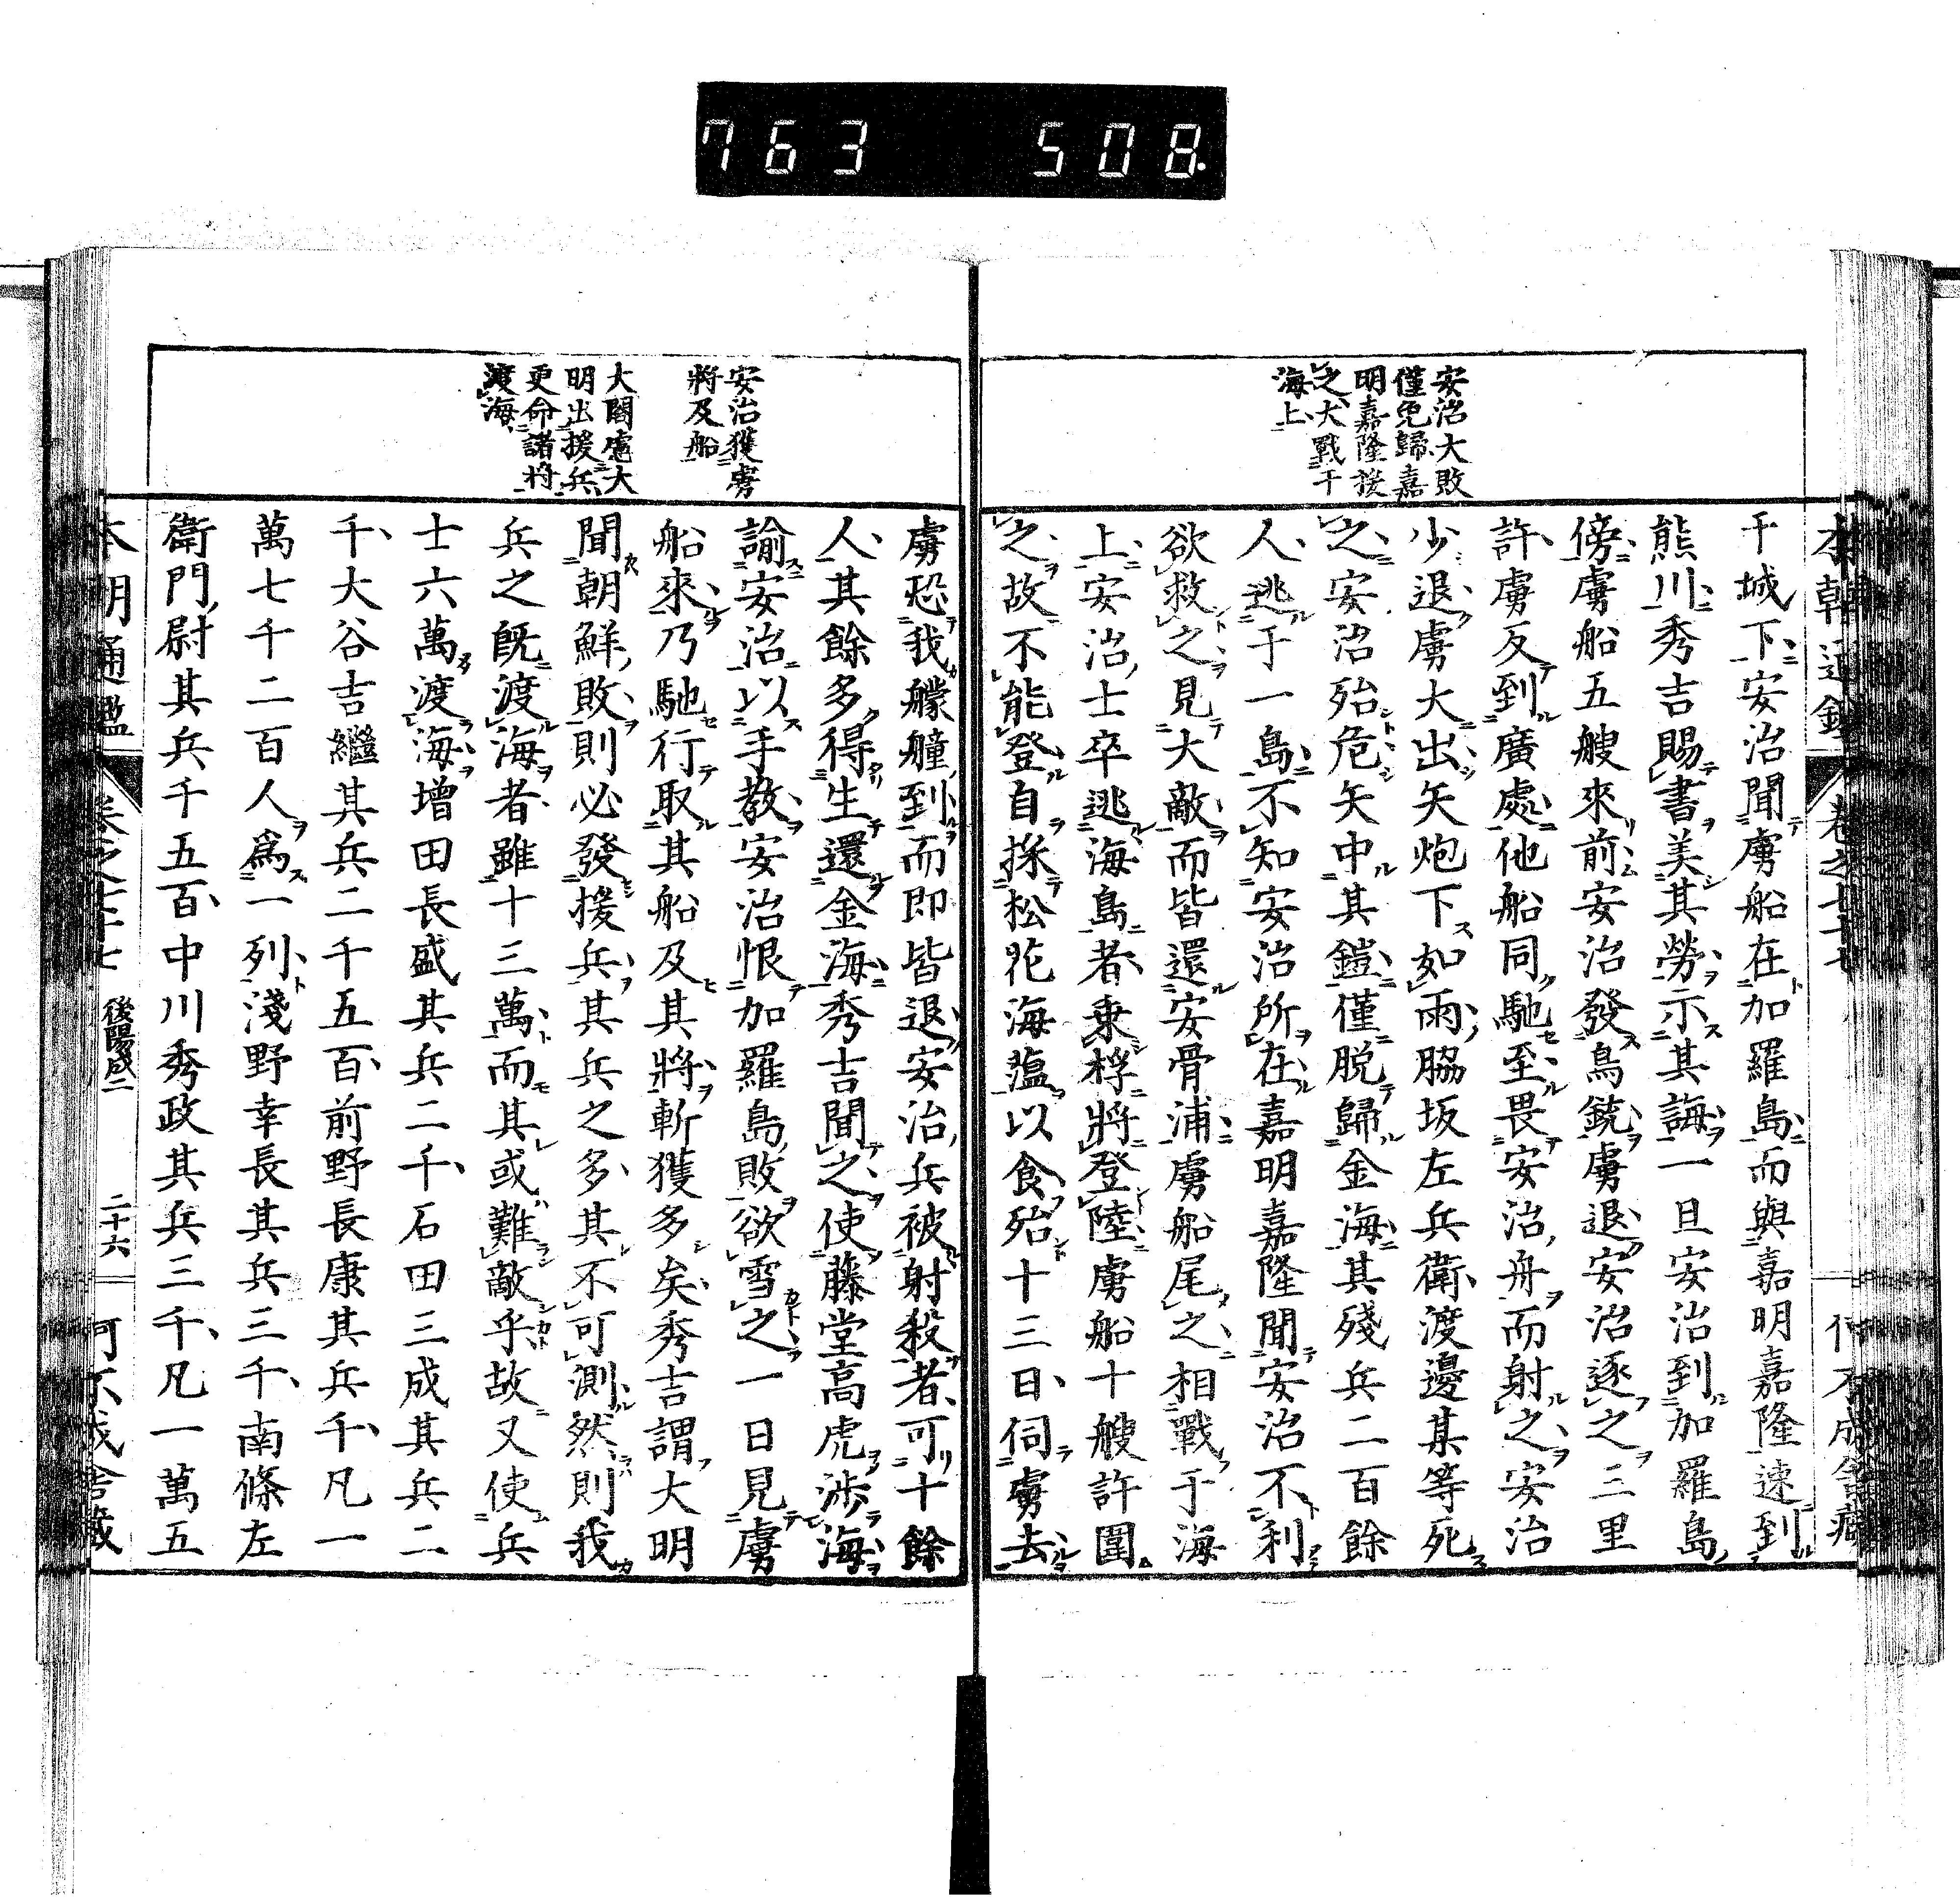 763 508
安治大敗
僅免歸嘉
明嘉隆援
之大戰于
海上
于城下安治聞虜船在加羅島而與嘉明嘉隆速到
熊川秀吉賜書美其勞示其誨一旦安治到加羅島
傍虜船五艘來前安治發鳥銃虜退安治逐之三里
許虜反到廣處他船同馳至畏安治舟而射之安治
少退虜大出矢炮下如雨脇坂左兵衛渡邊某等死
之安治殆危矢中其鎧僅脱歸金海其殘兵二百餘
人逃于一島不知安治所在嘉明嘉隆聞安治不利
欲救之見大敵而皆還安骨浦虜船尾之相戰于海
上安治士卒逃海島者乘桴將登陸虜船十艘許圍
之故不能登自採松花海薀以食殆十三日伺虜去
安治獲虜
將及船
大閤慮大
明出援兵
更命諸將
渡海
虜恐我艨艟到而即皆退安治兵被射殺者可十餘
人其餘多得生還金海秀吉聞之使藤堂高虎渉海
諭安治以手教安治恨加羅島敗欲雪之一日見虜
船來乃馳行取其船及其將斬獲多矣秀吉謂大明
聞朝鮮敗則必發援兵其兵之多其不可測然則我
兵之既渡海者雖十三萬而其或難敵乎故又使兵
士六萬渡海增田長盛其兵二千石田三成其兵二
千大谷吉繼其兵二千五百前野長康其兵千凡一
萬七千二百人爲一列淺野幸長其兵三千南條左
衛門尉其兵千五百中川秀政其兵三千凡一萬五
後陽成二
二十六